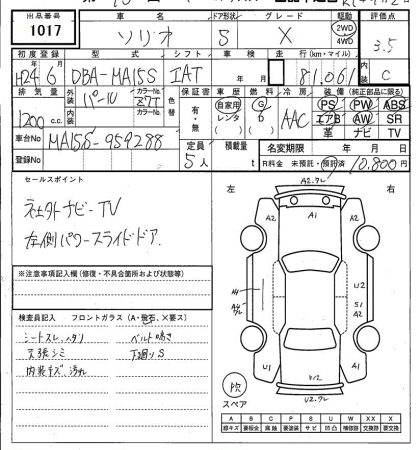 出品番号 車名 ドア形状 グレード 駆動 評価点
1017 ソリオ 5 X 2WD 4WD 3.5
初度登録 型式 シフト 車検 走行(km・マイル) 内装
H24 6月 DBA-MA15S IAT 年 月 81,061 C
排気量 外装 パール カラーNo. Z7T 色替 保証書 車歴 燃料 冷房 装備(純正部品に限る)
1200 c.c. 内装 カラーNo. 有・無 自家用 レンタ G AAC PS PW ABS
エアB AW SR
革 ナビ TV
車台No MA15S-959288 定員 5人 積載量 t 名変期限 年 月
登録No R料金 未預託・預託済 10,800円
セールスポイント
社外ナビ-TV
左側パワースライドドア.
※注意事項記入欄(修復・不具合箇所および状態等)
検査員記入 フロントガラス(A・飛石、X要ス)
シートスレ、ハタリ ベルト鳴き
天張シミ 下廻りS
内装キズ、汚れ
左 右
A2.ワレ
A2 A1 A2
A4 U2
A4 ワレ S1
A1
U1 U1
U2.ワレ
スペア
A B C P S U W X XX
線キズ 要板金 腐蝕 要塗装 サビ 凹凸 補修跡 交換跡 要交換